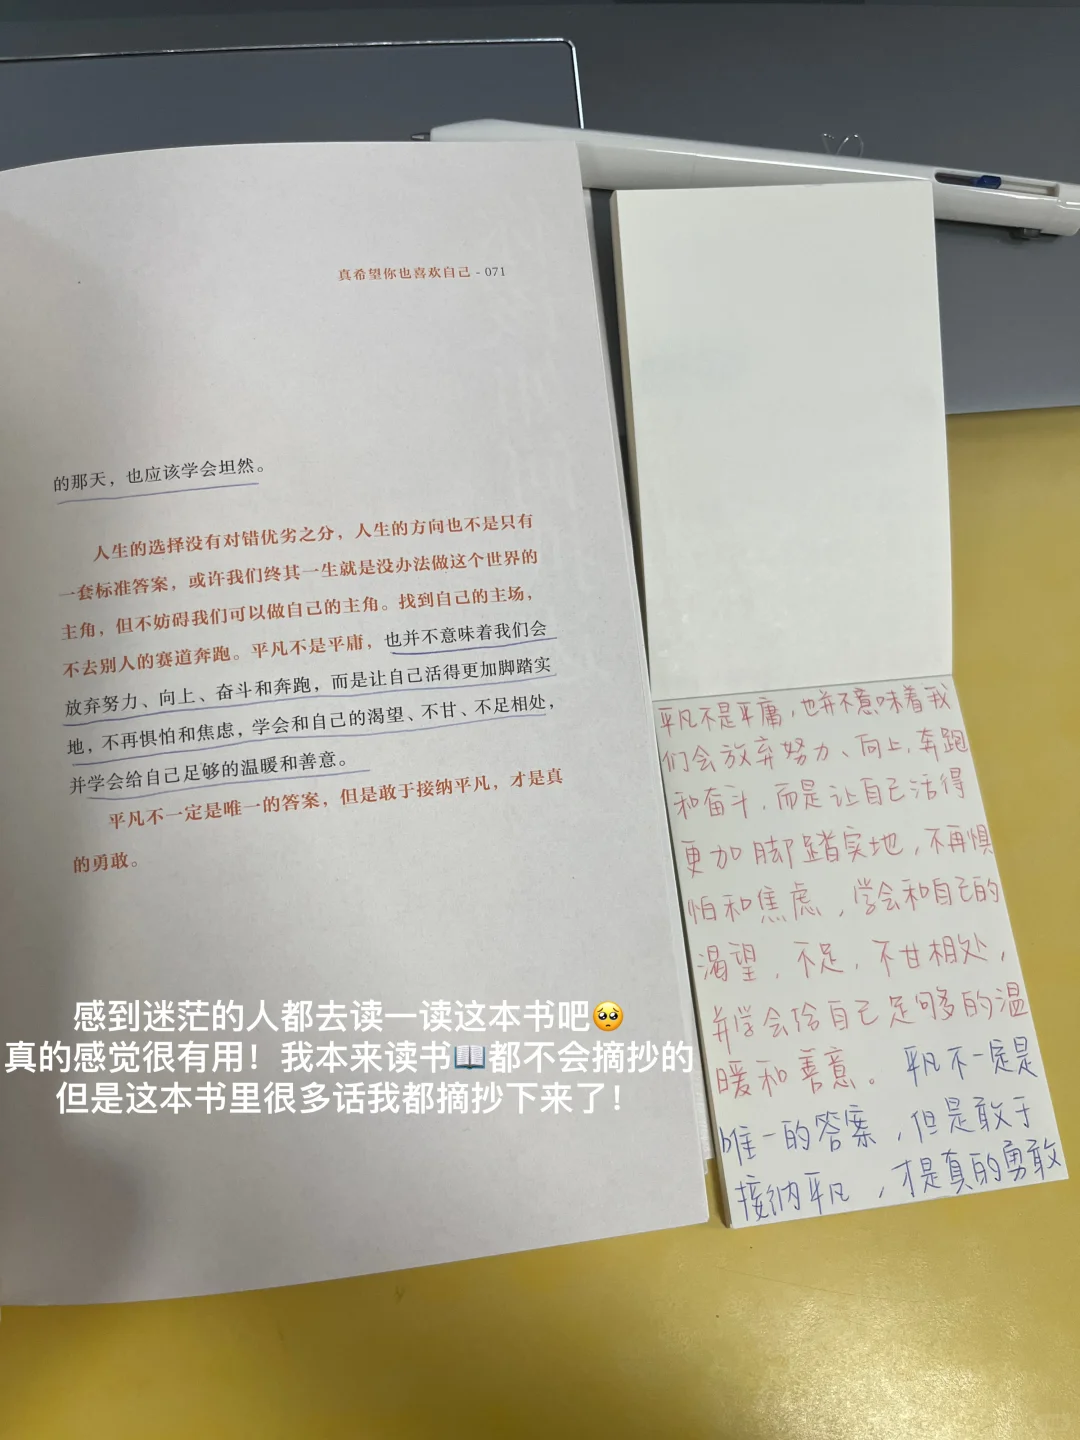 真希望你也喜欢自己 - 071
的那天，也应该学会坦然。
人生的选择没有对错优劣之分，人生的方向也不是只有
一套标准答案，或许我们终其一生就是没办法做这个世界的
主角，但不妨碍我们可以做自己的主角。找到自己的主场，
不去别人的赛道奔跑。平凡不是平庸，也并不意味着我们会
放弃努力、向上、奋斗和奔跑，而是让自己活得更加脚踏实
地，不再惧怕和焦虑，学会和自己的渴望、不甘、不足相处，
并学会给自己足够的温暖和善意。
平凡不一定是唯一的答案，但是敢于接纳平凡，才是真
的勇敢。
平凡不是平庸，也并不意味着我
们会放弃努力、向上、奔跑
和奋斗，而是让自己活得
更加脚踏实地，不再惧
怕和焦虑，学会和自己的
渴望，不足，不甘相处，
并学会给自己足够多的温
暖和善意。平凡不一定是
唯一的答案，但是敢于
接纳平凡，才是真的勇敢
感到迷茫的人都去读一读这本书吧🥺
真的感觉很有用！我本来读书📖都不会摘抄的
但是这本书里很多话我都摘抄下来了！